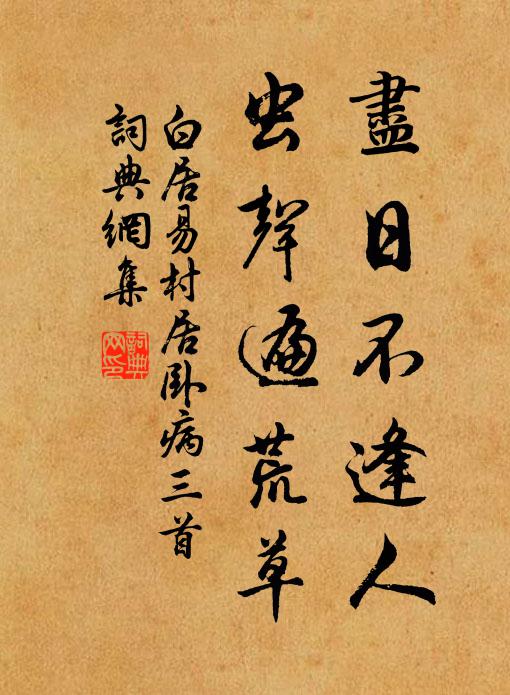 盡日不逢人
虫聲遍荒草
白居易村居卧病三首
詞典網集
詞典网印